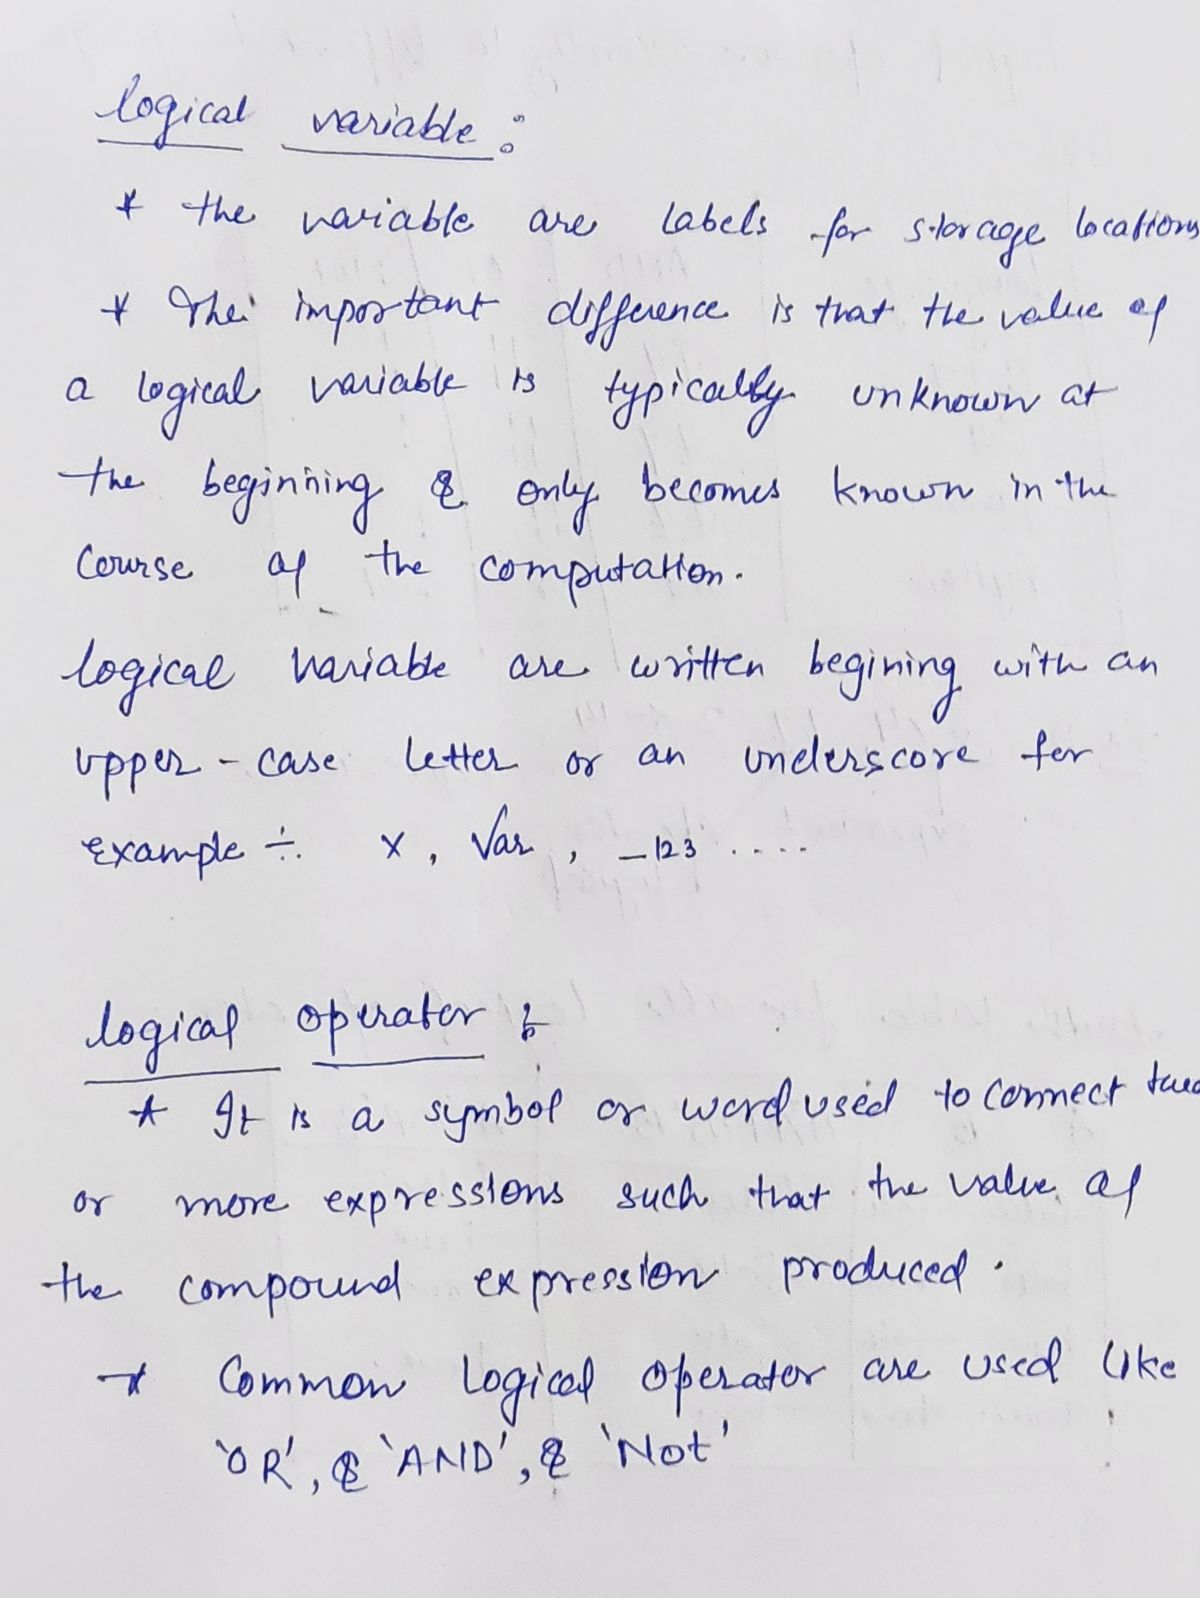 logical variable :
* the variable are labels for storage locations
* The important difference is that the value of
a logical variable is typically unknown at
the beginining & only becomes known in the
Course of the computation.
logical variable are written begining with an
upper - case letter or an underscore for
example ÷ X , Var , _123 ....
logical operator :-
* It is a symbol or word used to connect two
or more expressions such that the value of
the compound expression produced.
* Common logical operator are used like
'OR', & 'AND', & 'Not'